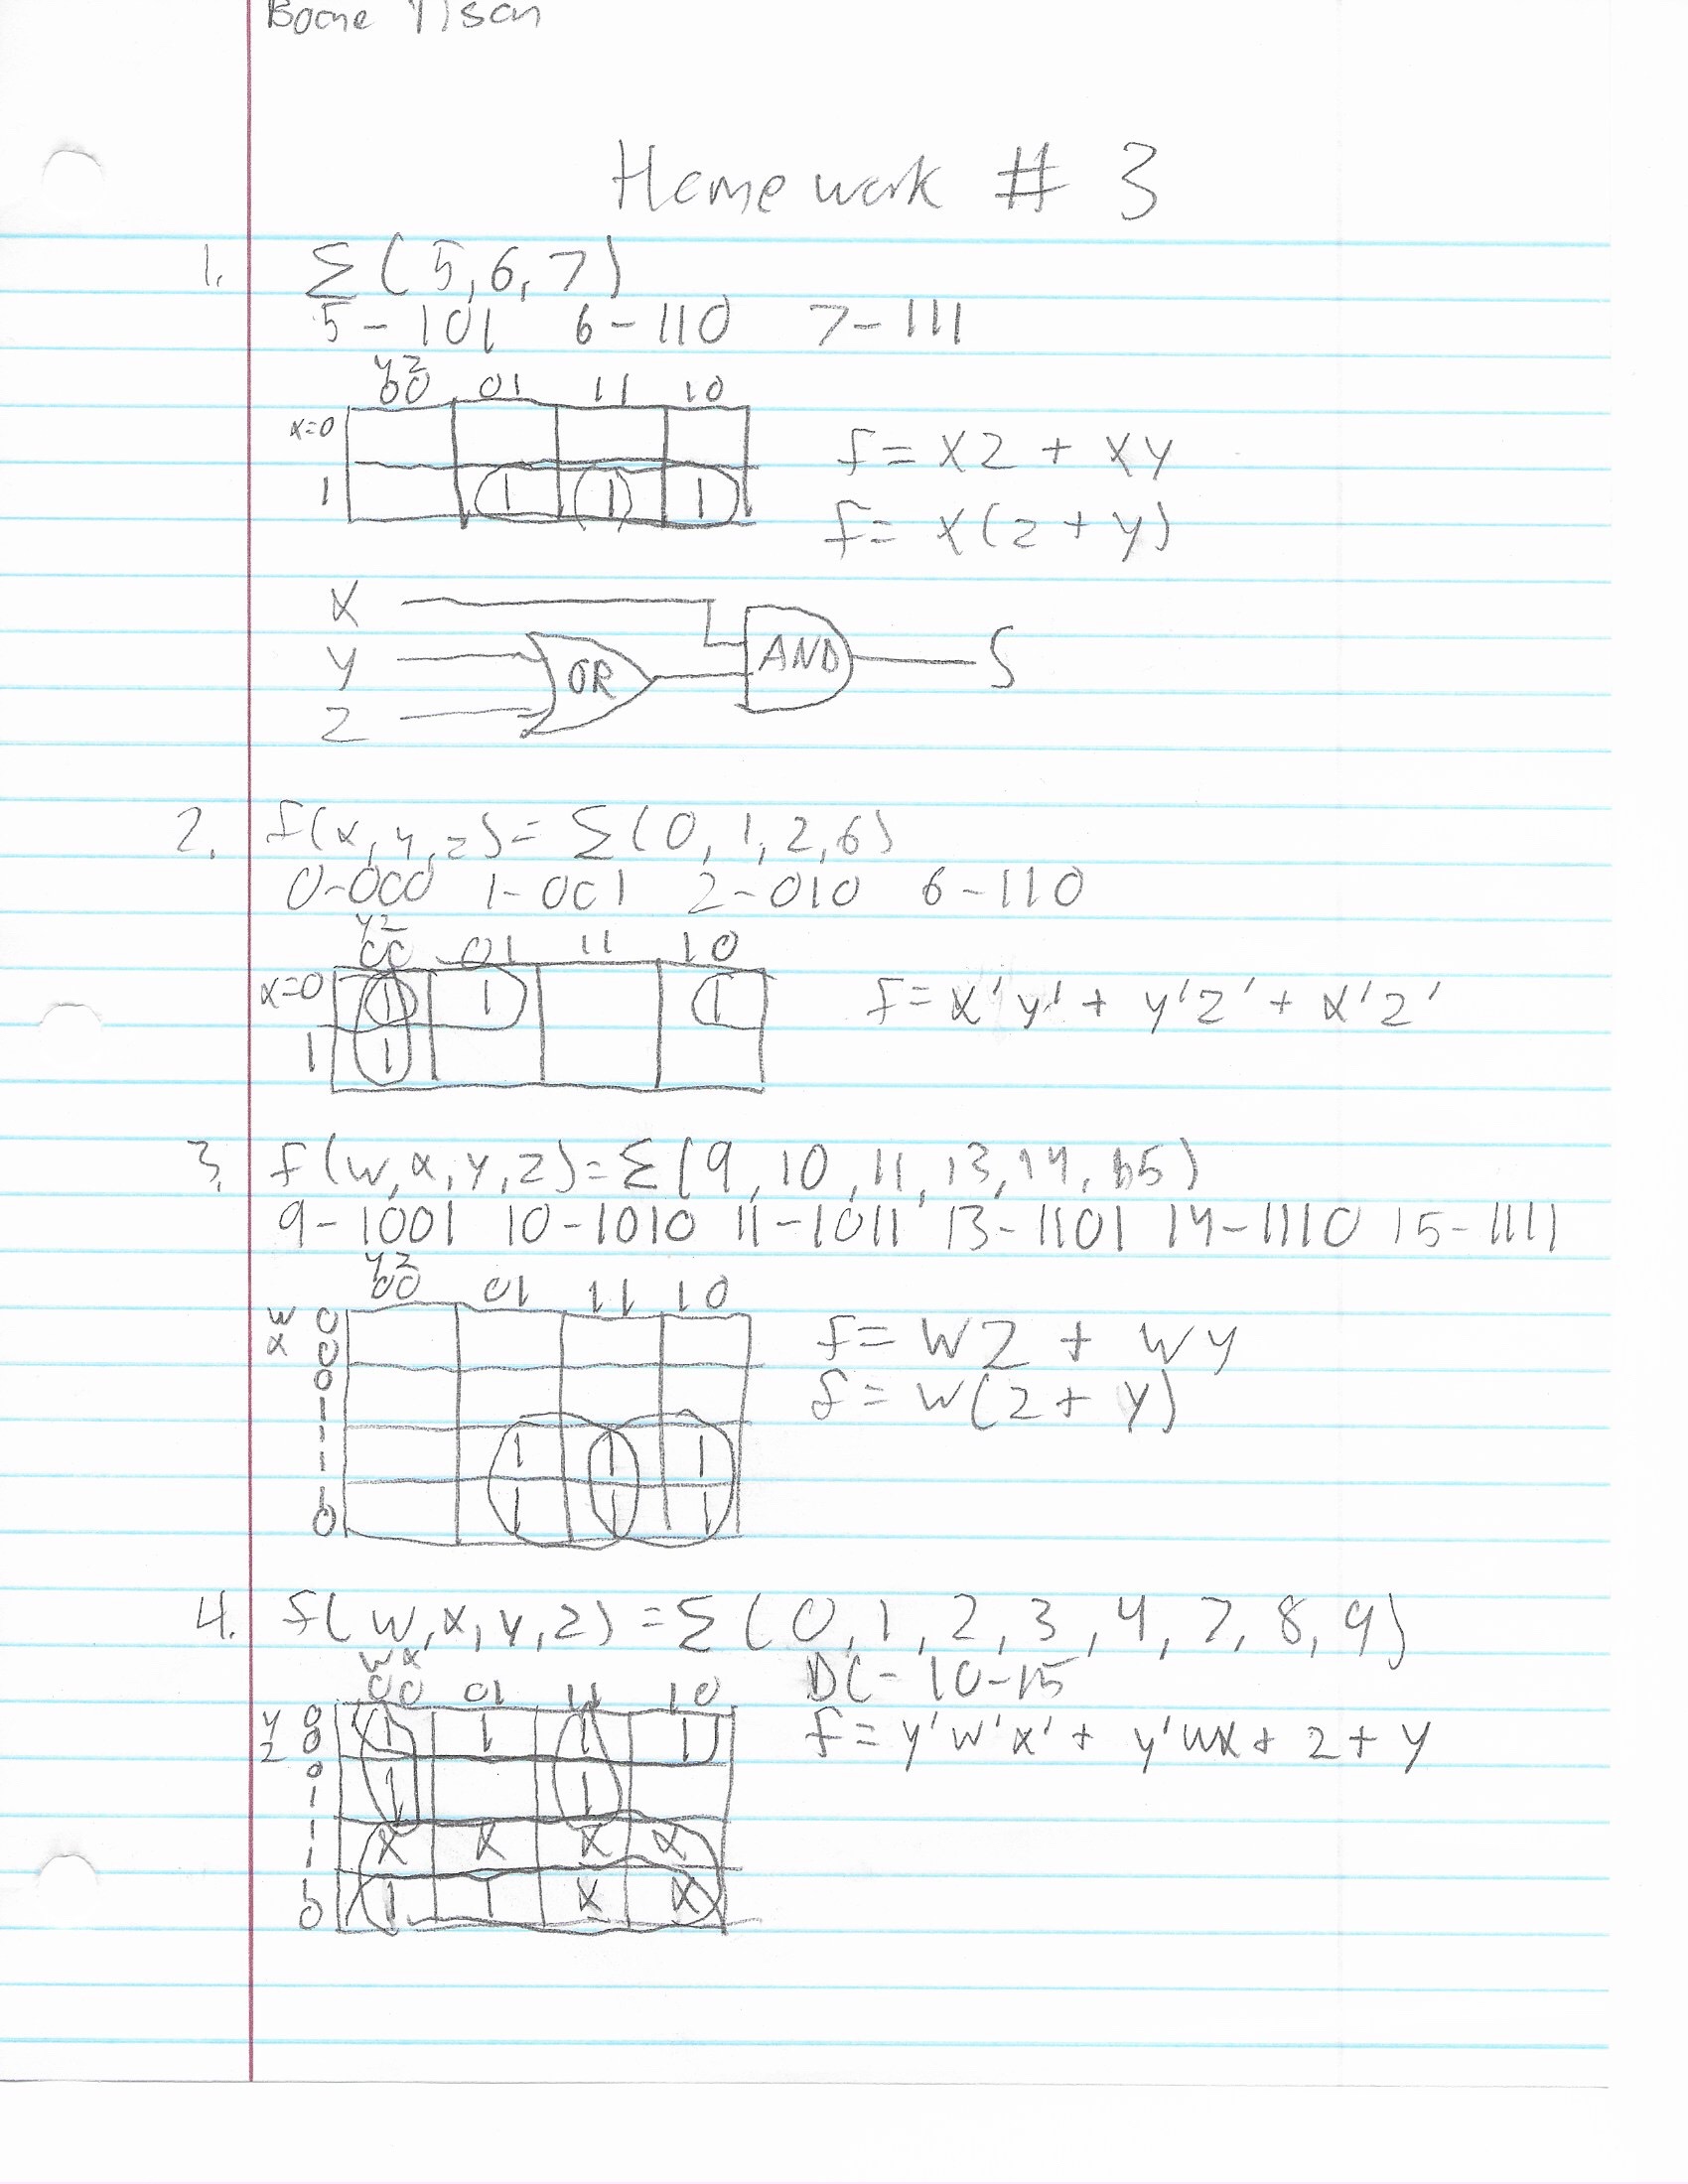 Boone
Homework # 3
1. Σ(5,6,7)
5-101 6-110 7-111
yz
00 01 11 10
x=0
1 1 1 1
f= xz + xy
f= x(z+y)
x
y OR AND f
z
2. f(x,y,z)= Σ(0,1,2,6)
0-000 1-001 2-010 6-110
yz
00 01 11 10
x=0 1 1 1
1 1
f= x'y' + y'z' + x'z'
3. f(w,x,y,z)=Σ(9,10,11,13,14,15)
9-1001 10-1010 11-1011 13-1101 14-1110 15-1111
yz
00 01 11 10
w 0
x 0
0
1
1 1 1 1
1
1 1 1 1
0
f= wz + wy
f= w(z+ y)
4. f(w,x,y,z)=Σ(0,1,2,3,4,7,8,9)
DC- 10-15
wx
00 01 11 10
y 0 1 1 1 1
z 0
0 1 1
1
1 x x x x
1
1 1 1 x x
0
f= y'w'x' + y'wx + z + y